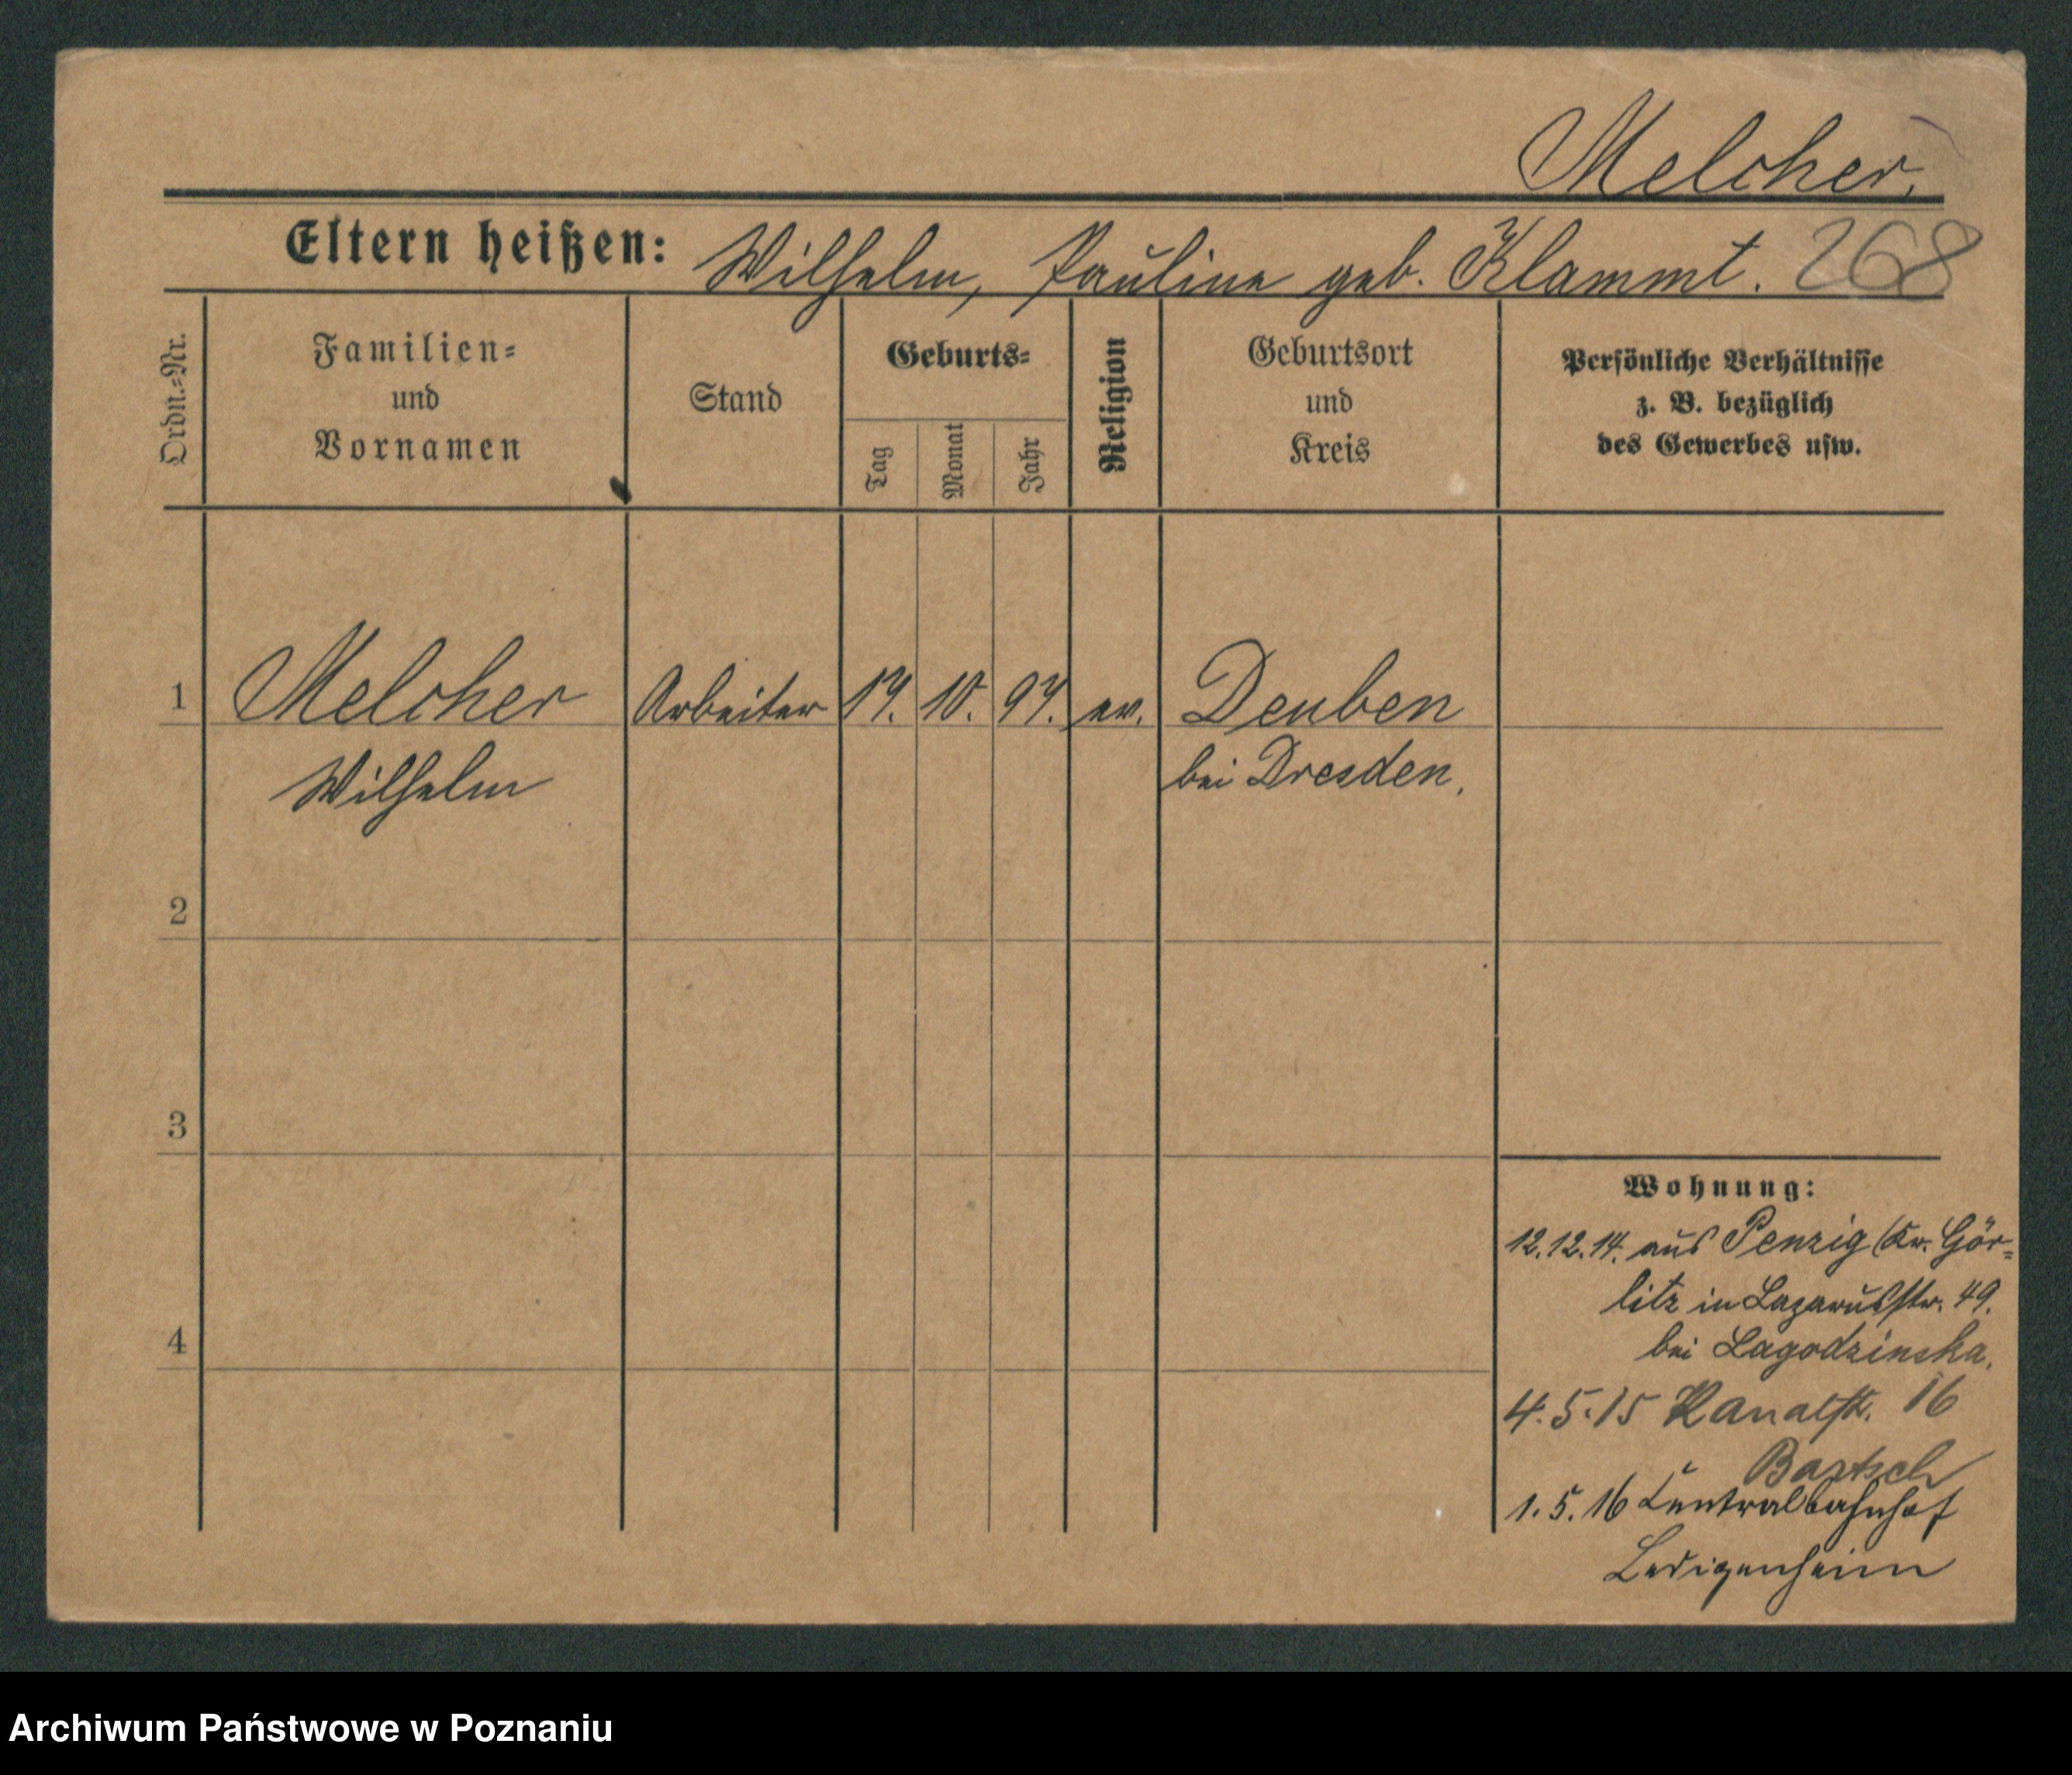 Melcher.
Eltern heißen: Wilhelm, Pauline geb. Klammt. 268
Ordn.=Nr.
Familien=
und
Vornamen
Stand
Geburts=
Tag
Monat
Jahr
Religion
Geburtsort
und
Kreis
Persönliche Verhältnisse
z. B. bezüglich
des Gewerbes usw.
1 Melcher Arbeiter 19. 10. 97. ev. Deuben
Wilhelm bei Dresden.
2
3
4
Wohnung:
12.12.14. aus Penzig (Kr. Gör=
litz in Lazarusstr. 49.
bei Lagodzinska.
4.5.15 Kanalstr. 16
Bartsch
1.5.16 Centralbahnhof
Ledigenheim
Archiwum Państwowe w Poznaniu